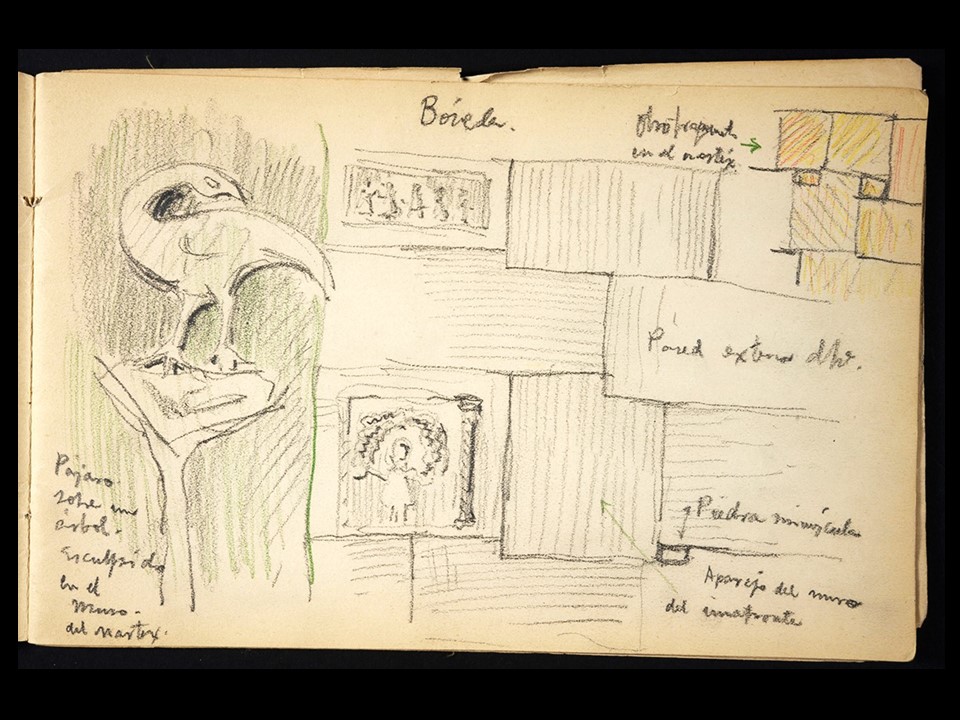 Bóveda.
Otro fragment.
en el nartex.
Pared externa dha.
Piedra minúscula
Aparejo del muro
del imafronte
Pájaro.
sobre un
árbol.
Esculpido
en el
muro.
del nartex.